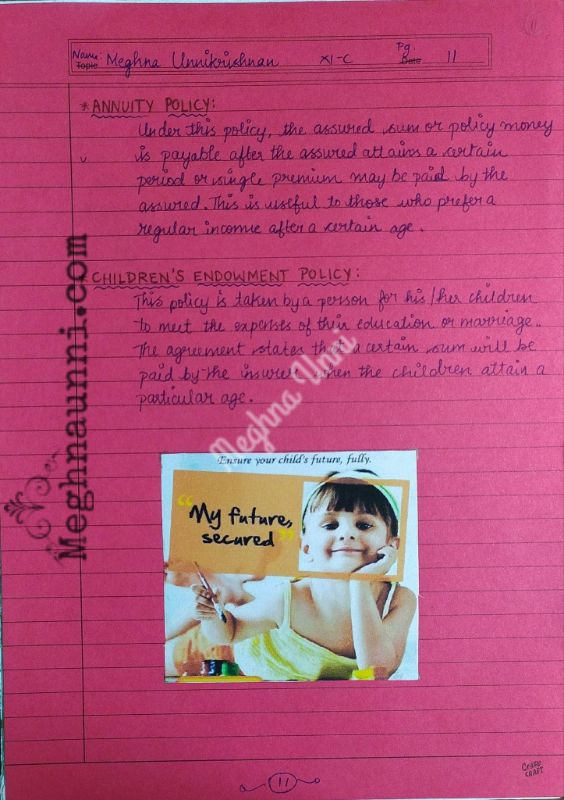 Name: Meghna Unnikrishnan XI-C Pg. 11
Topic Date
* ANNUITY POLICY:
Under this policy, the assured sum or policy money
is payable after the assured attains a certain
period or single premium may be paid by the
assured. This is useful to those who prefer a
regular income after a certain age.
* CHILDREN'S ENDOWMENT POLICY:
This policy is taken by a person for his/her children
to meet the expenses of their education or marriage.
The agreement states that a certain sum will be
paid by the insurer when the children attain a
particular age.
Meghna Unni
Meghnaunni.com
Ensure your child's future, fully.
"My future,
secured"
11
CRAFT